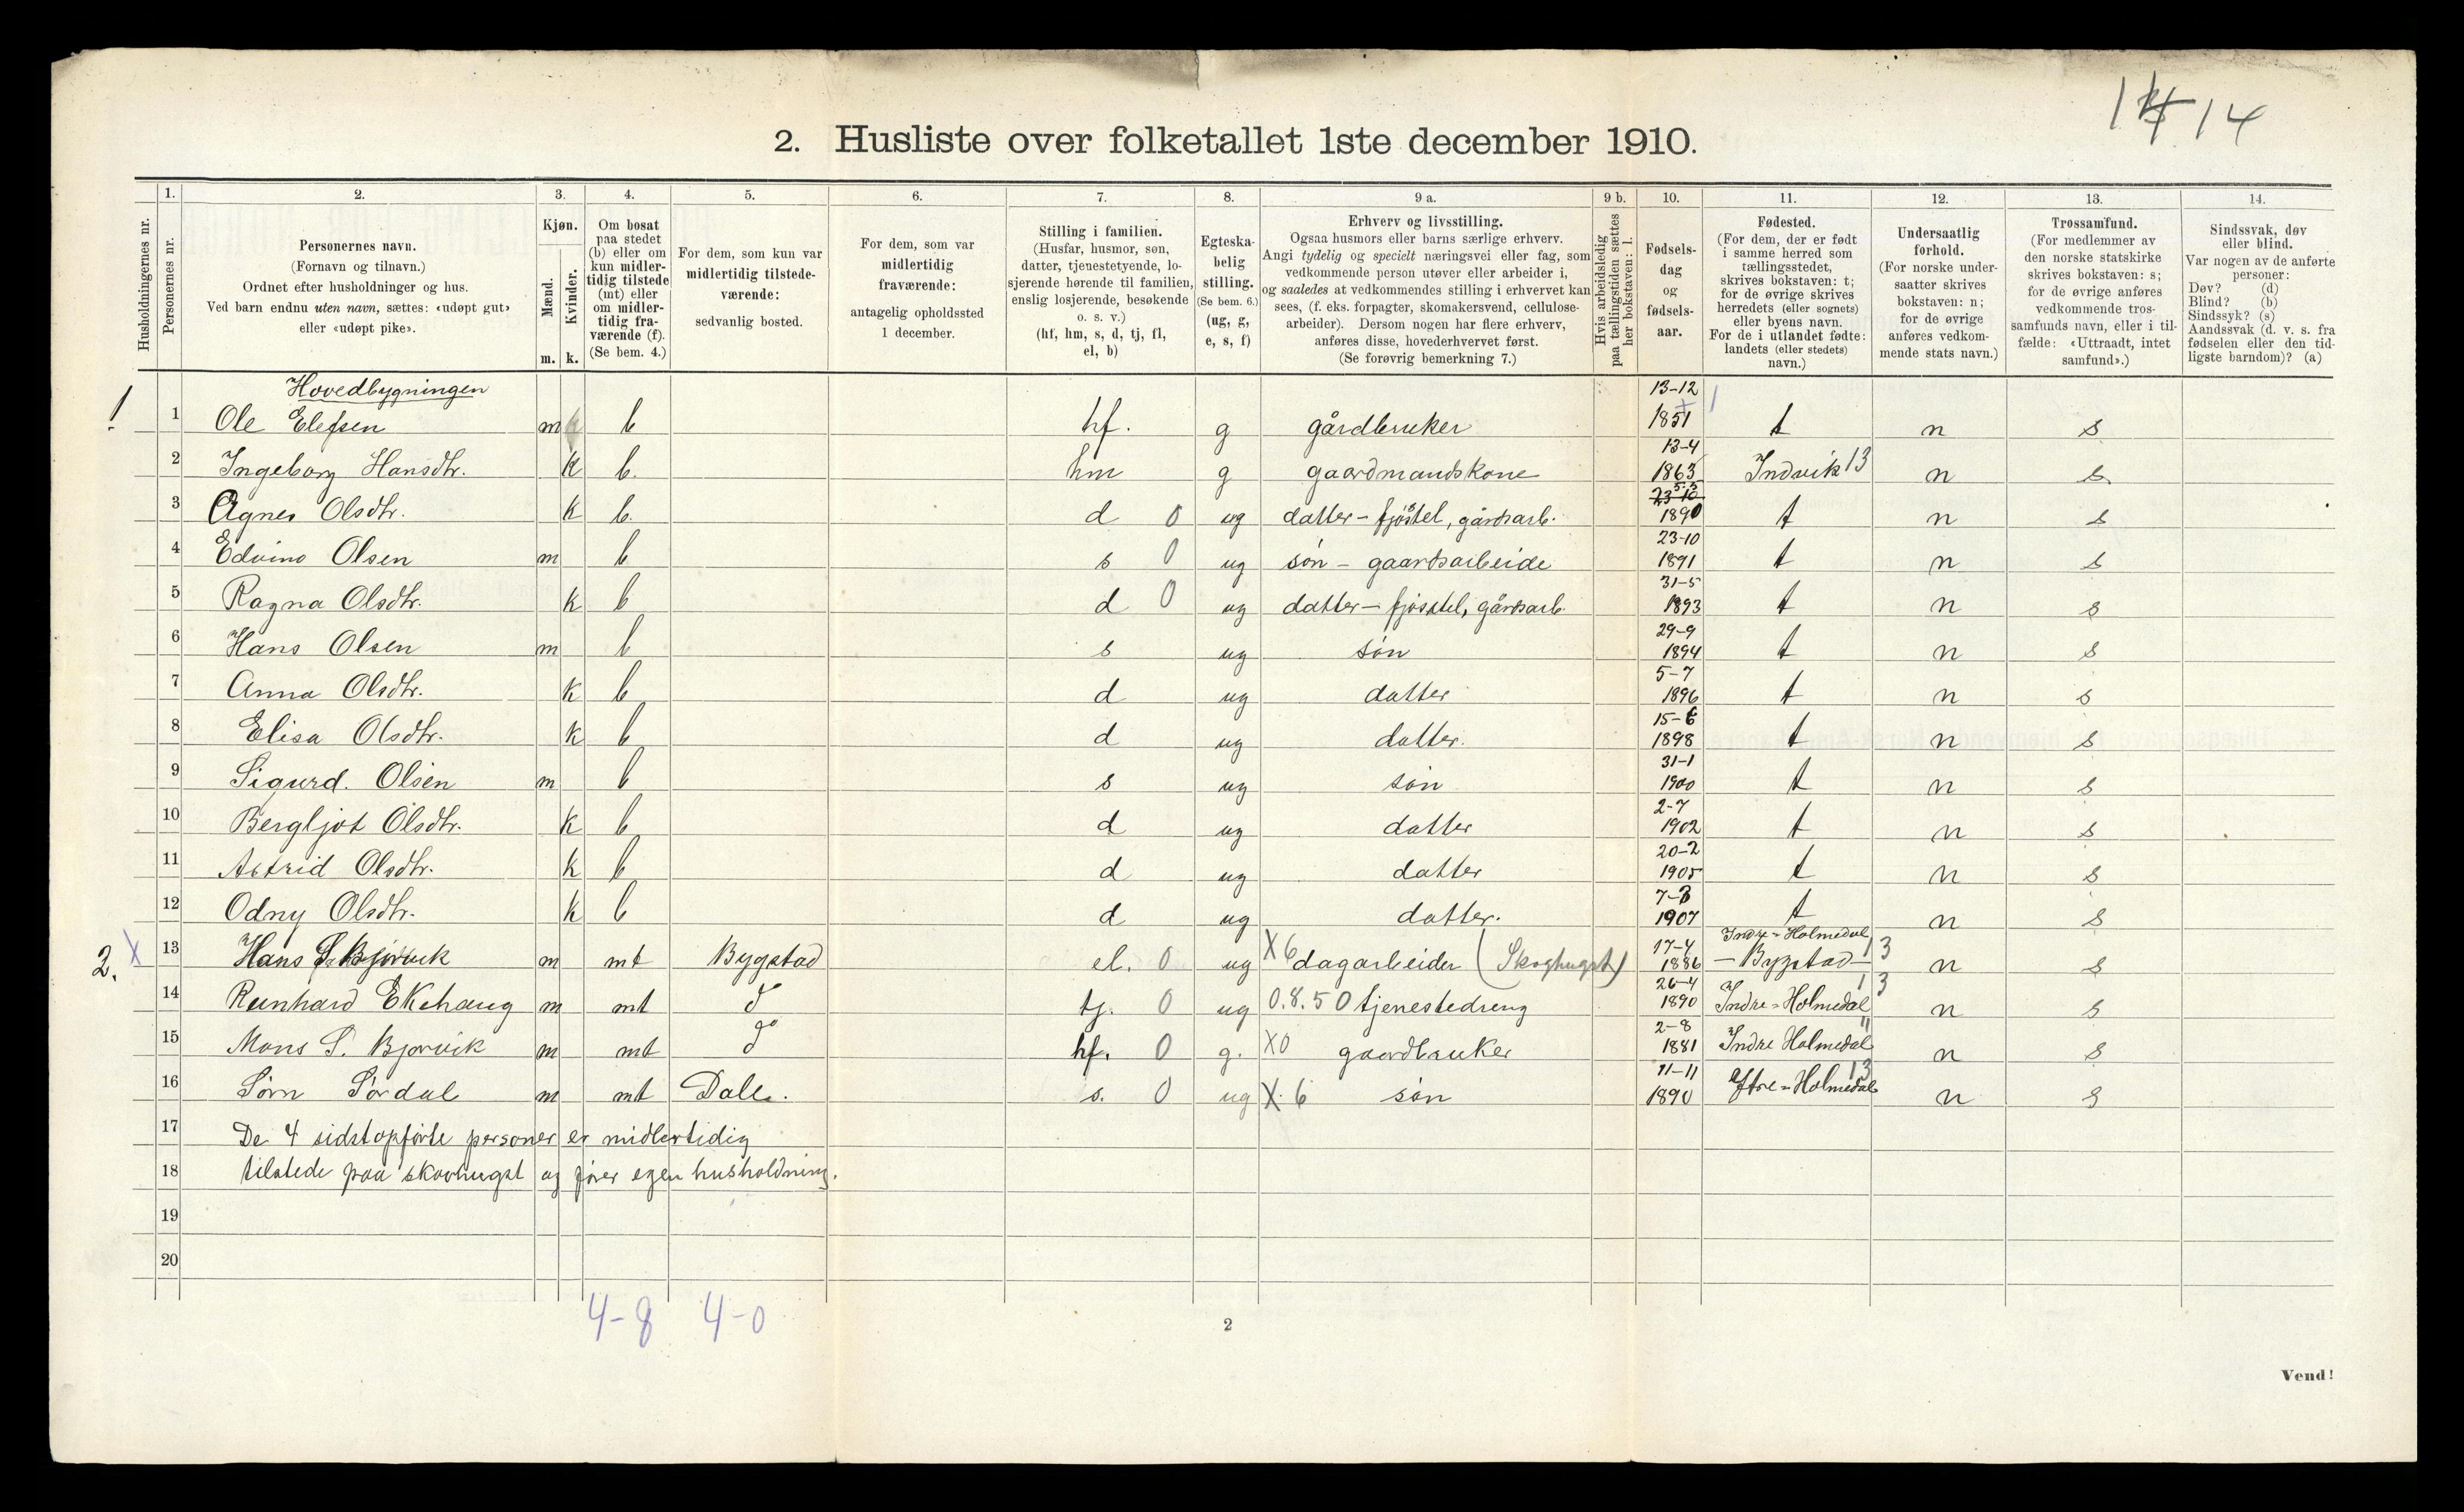 14 14
2. Husliste over folketallet 1ste december 1910.
Husholdningernes nr.
1. Personernes nr.
2. Personernes navn. (Fornavn og tilnavn.) Ordnet efter husholdninger og hus. Ved barn endnu uten navn, sættes: «udøpt gut» eller «udøpt pike».
3. Kjøn. Mænd. m. Kvinder. k.
4. Om bosat paa stedet (b) eller om kun midlertidig tilstede (mt) eller om midlertidig fraværende (f). (Se bem. 4.)
5. For dem, som kun var midlertidig tilstedeværende: sedvanlig bosted.
6. For dem, som var midlertidig fraværende: antagelig opholdssted 1 december.
7. Stilling i familien. (Husfar, husmor, søn, datter, tjenestetyende, losjerende hørende til familien, enslig losjerende, besøkende o. s. v.) (hf, hm, s, d, tj, fl, el, b)
8. Egteskabelig stilling. (Se bem. 6.) (ug, g, e, s, f)
9 a. Erhverv og livsstilling. Ogsaa husmors eller barns særlige erhverv. Angi tydelig og specielt næringsvei eller fag, som vedkommende person utøver eller arbeider i, og saaledes at vedkommendes stilling i erhvervet kan sees, (f. eks. forpagter, skomakersvend, cellulosearbeider). Dersom nogen har flere erhverv, anføres disse, hovederhvervet først. (Se forøvrig bemerkning 7.)
9 b. Hvis arbeidsledig paa tællingstiden sættes her bokstaven: l.
10. Fødselsdag og fødselsaar.
11. Fødested. (For dem, der er født i samme herred som tællingsstedet, skrives bokstaven: t; for de øvrige skrives herredets (eller sognets) eller byens navn. For de i utlandet fødte: landets (eller stedets) navn.)
12. Undersaatlig forhold. (For norske undersaatter skrives bokstaven: n; for de øvrige anføres vedkommende stats navn.)
13. Trossamfund. (For medlemmer av den norske statskirke skrives bokstaven: s; for de øvrige anføres vedkommende trossamfunds navn, eller i tilfælde: «Uttraadt, intet samfund».)
14. Sindssvak, døv eller blind. Var nogen av de anførte personer: Døv? (d) Blind? (b) Sindssyk? (s) Aandssvak (d. v. s. fra fødselen eller den tidligste barndom)? (a)
Hovedbygningen
1 Ole Elefsen m b hf. g gårdbruker 13-12 1851 t n s
2 Ingeborg Hansdtr. k b. hm g gaardmandskone 13-4 1863 Indvik 13 n s.
3 Agnes Olsdtr. k b. d 0 ug datter - fjøstel, gårdsarb. 23-10 5-5 1890 t n s
4 Edvino Olsen m b s 0 ug søn - gaardsarbeide 23-10 1891 t n s
5 Ragna Olsdtr. k b d 0 ug datter - fjøsstel, gårdsarb. 31-5 1893 t n s
6 Hans Olsen m b s ug søn 29-9 1894 t n s
7 Anna Olsdtr. k b d ug datter 5-7 1896 t n s
8 Elisa Olsdtr. k b d ug datter. 15-6 1898 t n s
9 Sigurd. Olsen m b s ug søn 31-1 1900 t n s
10 Bergljot Olsdtr. k b d ug datter 2-7 1902 t n s
11 Astrid Olsdtr. k b d ug datter 20-2 1905 t n s
12 Odny Olsdtr. k b d ug datter. 7-3 1907 t n s
2. X 13 Hans S. Bjørvik m mt Bygstad el. 0 ug X 6 dagarbeider (Skoghugst) 17-4 1886 Indre-Holmedal - Bygstad - 13 n s
14 Reinhard Ekehaug m mt do tj. 0 ug 0.8.50 tjenestedreng 26-4 1890 Indre-Holmedal 13 n s
15 Mons S. Bjørvik m mt do hf. 0 g. X0 gaardbruker 2-8 1881 Indre Holmedal " n s
16 Sørn Sørdal m mt Dale. s. 0 ug X. 6 søn 11-11 1890 Ytre-Holmedal 13 n s
17 De 4 sidstopførte personer er midlertidig
18 tilstede paa skovhugst og fører egen husholdning.
19
20
4-8 4-0
2
Vend!